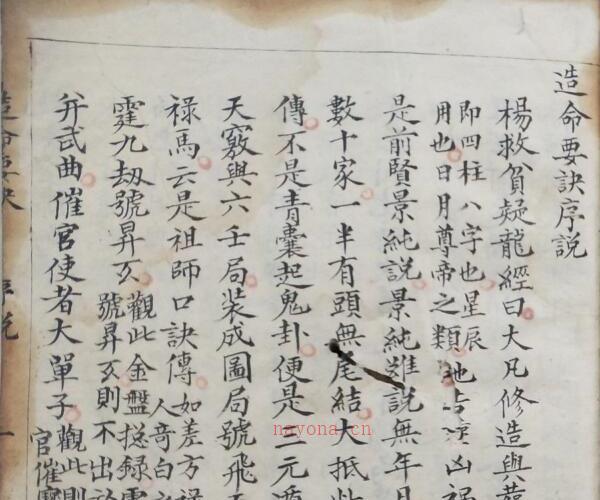 造命要訣序説
楊救貧疑龍經曰大凡修造與
即四柱八字也星辰
用也日月尊帝之類
凶禍
是前賢景純說景純雖說無年月
數十家一半有頭無尾結大抵
傳不是青囊起鬼卦便是三元
天竅與六壬局裝成圖局號飛
祿馬云是祖師口訣傳如差方祿
人奇白
霆九劫號昇玄觀此金盤捴録
號昇玄則不出
弁武曲催官使者大單子觀此則
官催
造命要訣
序説
一
nayona.cn